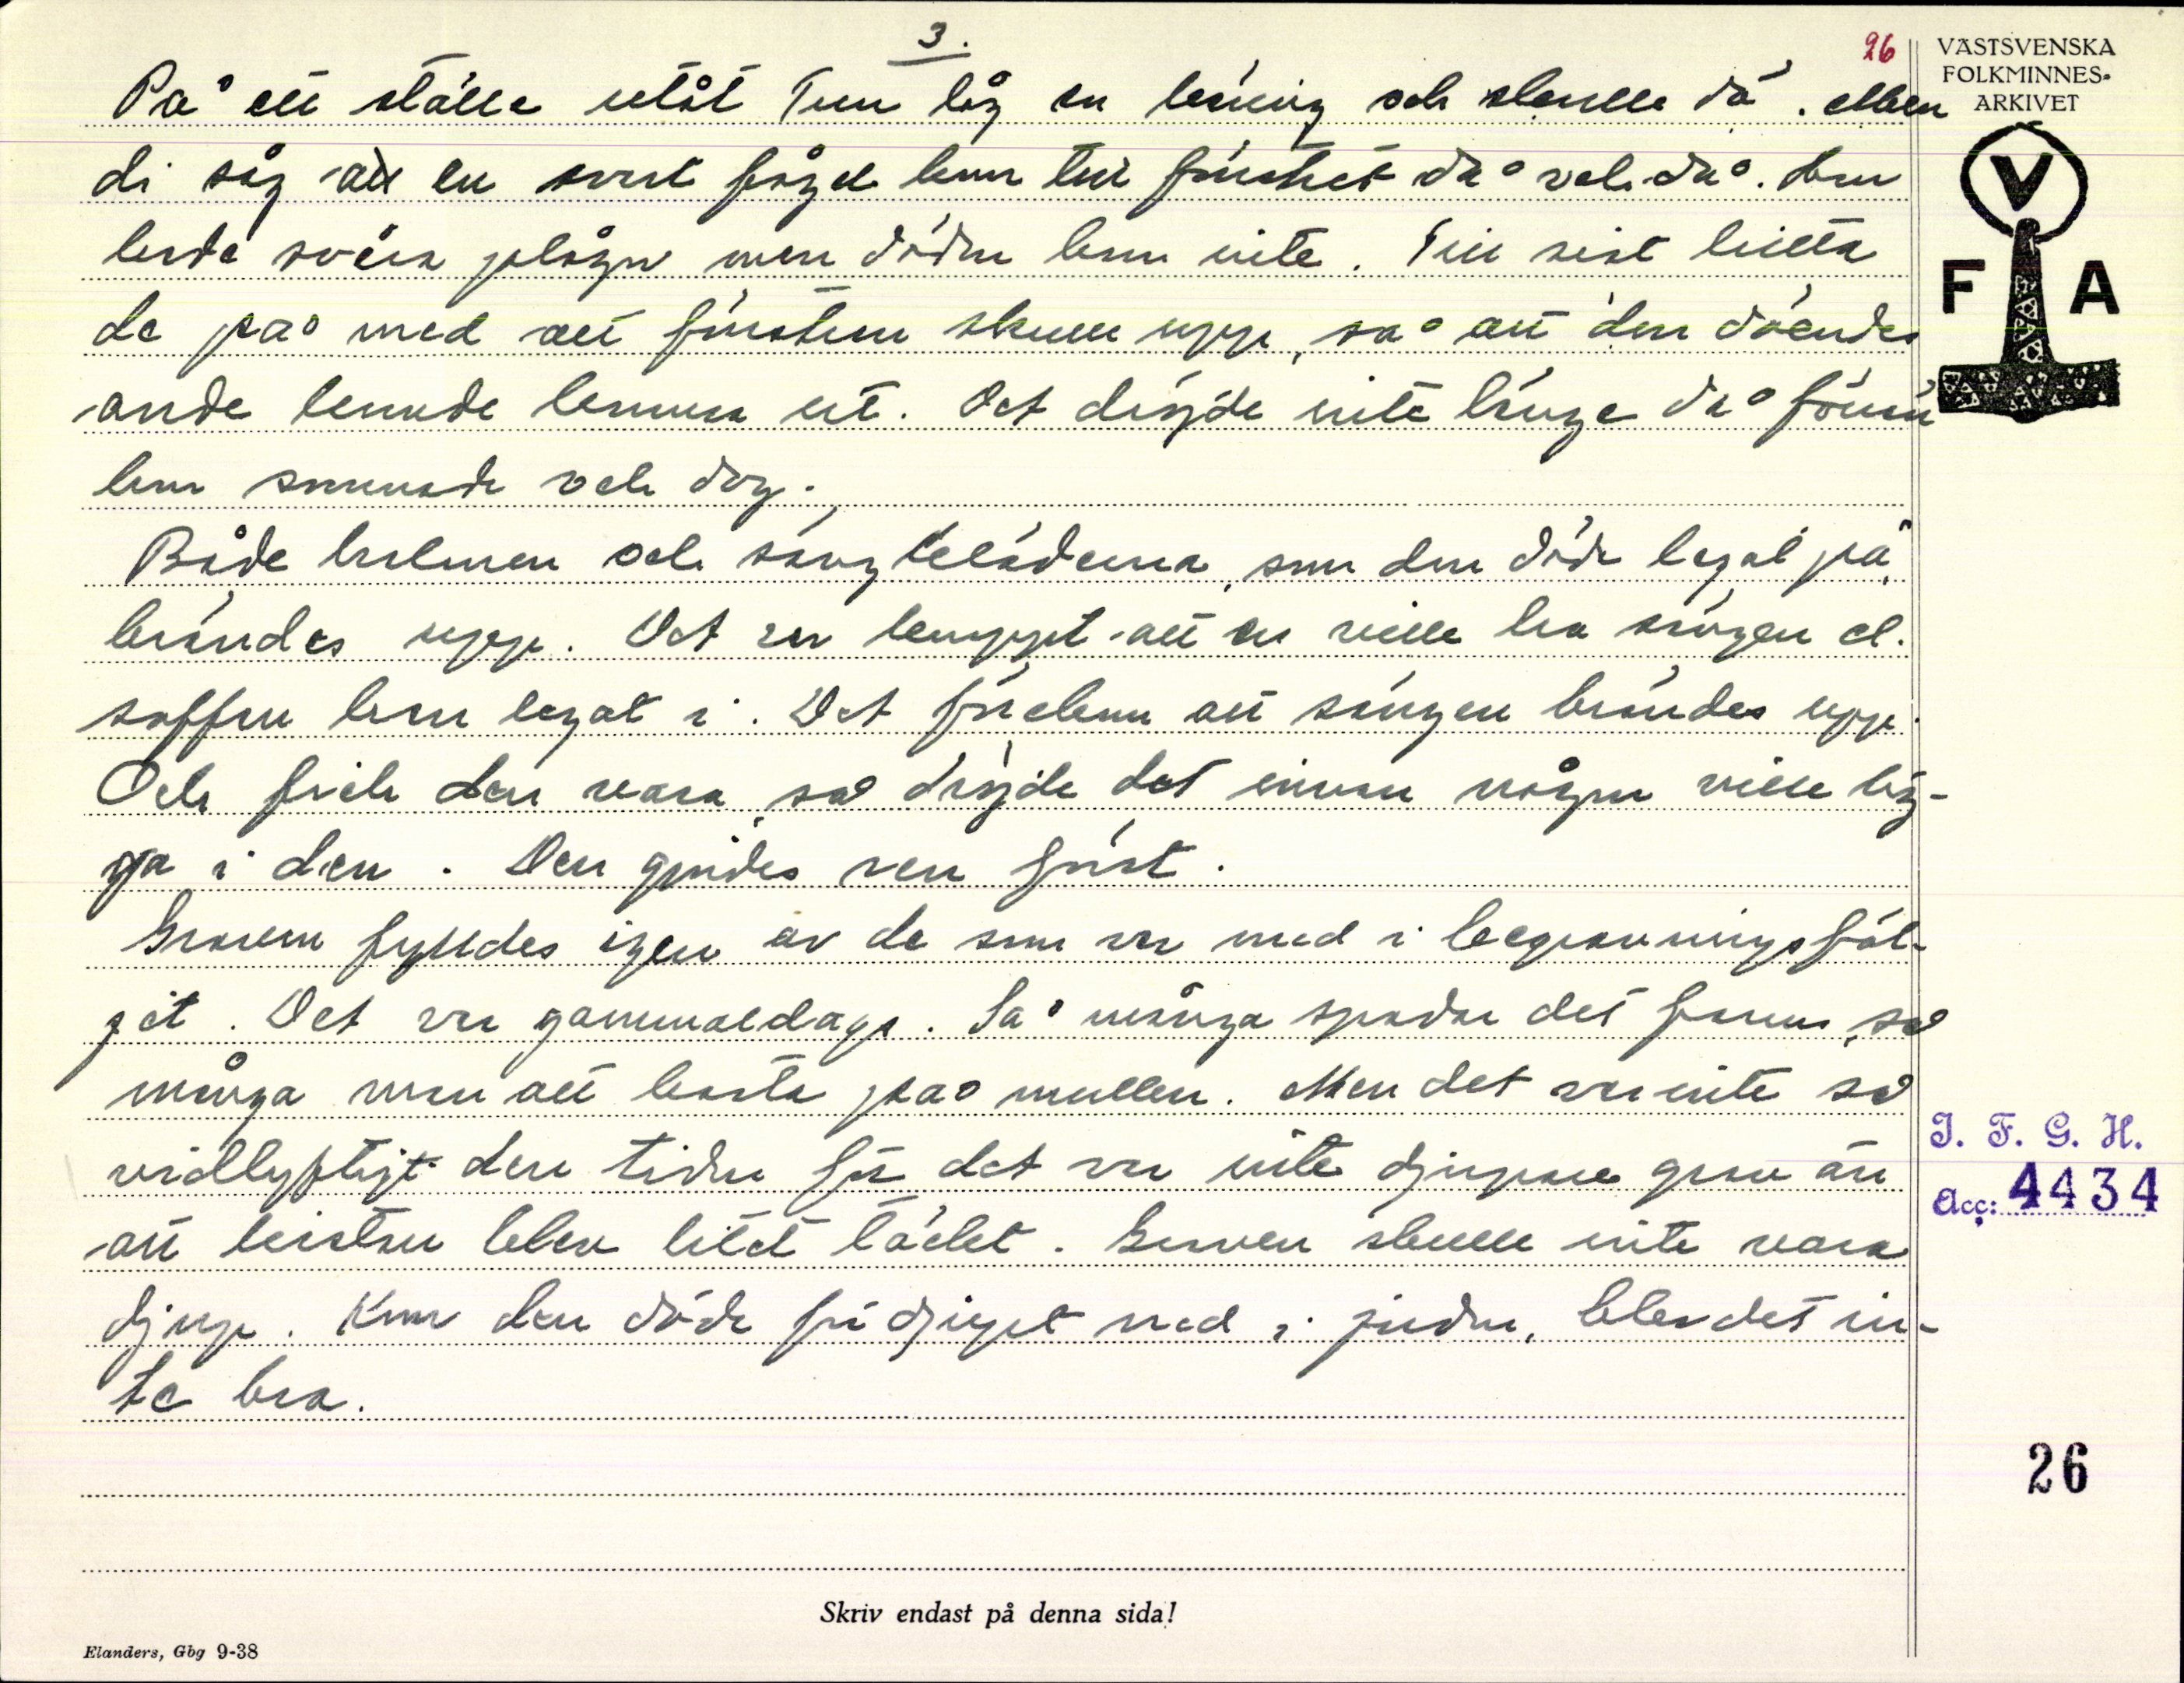 3.
26
VÄSTSVENSKA
FOLKMINNES-
ARKIVET
V
F A
På ett ställe utåt Tun låg en käring och skulle dö. Men
di såg att en svart fågel kom till fönstret då och då. Hon
hade svåra plågor men döden kom inte. Till sist hitta
de på med att fönstren skulle upp, så att den döendes
ande kunde komma ut. Det dröjde inte länge då förrän
hon somnade och dog.
Både halmen och sängkläderna, som den döde legat på,
brändes upp. Det var knappt att en ville ha sängen el.
soffan han legat i. Det förekom att sängen brändes upp.
Och fick den vara, så dröjde det innan någon ville lig-
ga i den. Den gjordes ren först.
Graven fylldes igen av de som var med i begravningsföl-
jet. Det var gammaldags. Så många spadar det fanns, så
många man att kasta på mullen. Men det var inte så
vidlyftigt den tiden för det var inte djupare grav än
att kistan blev litet täckt. Graven skulle inte vara
djup. Kom den döde för djupt ned i jorden, blev det in-
te bra.
I. F. G. H.
Acc: 4434
26
Skriv endast på denna sida!
Elanders, Gbg 9-38